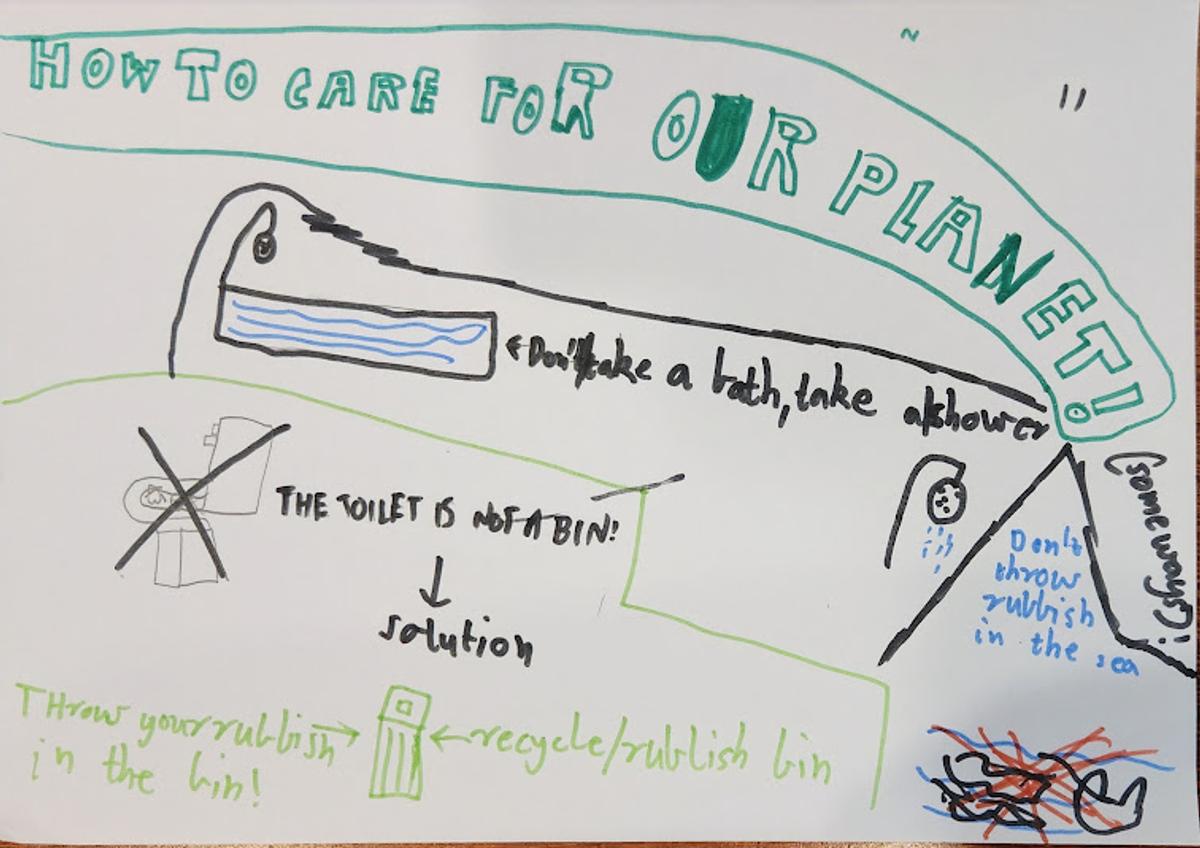 HOW TO CARE FOR OUR PLANET!
(some ways!)
Don't take a bath, take a shower
THE TOILET IS NOT A BIN!
solution
THrow your rubbish
in the bin!
recycle/rubbish bin
Don't
throw
rubbish
in the sea